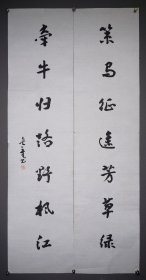 策马征途芳草绿
牵牛归路野枫江